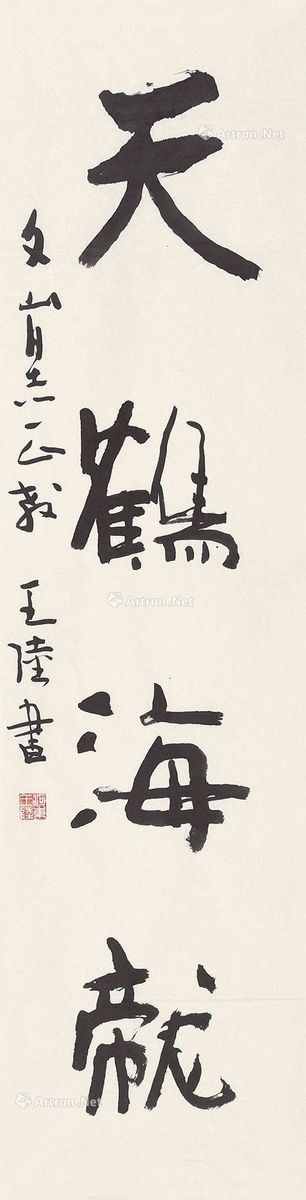 天鶴海龍
文山同志正教 王陸書
Artron.Net
Artron.Net
Artron.Net